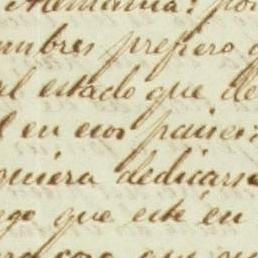 Alemania: por
umbres prefiero q
al estado que de
l en esos paises:
quiera dedicarse
ngo que esté en